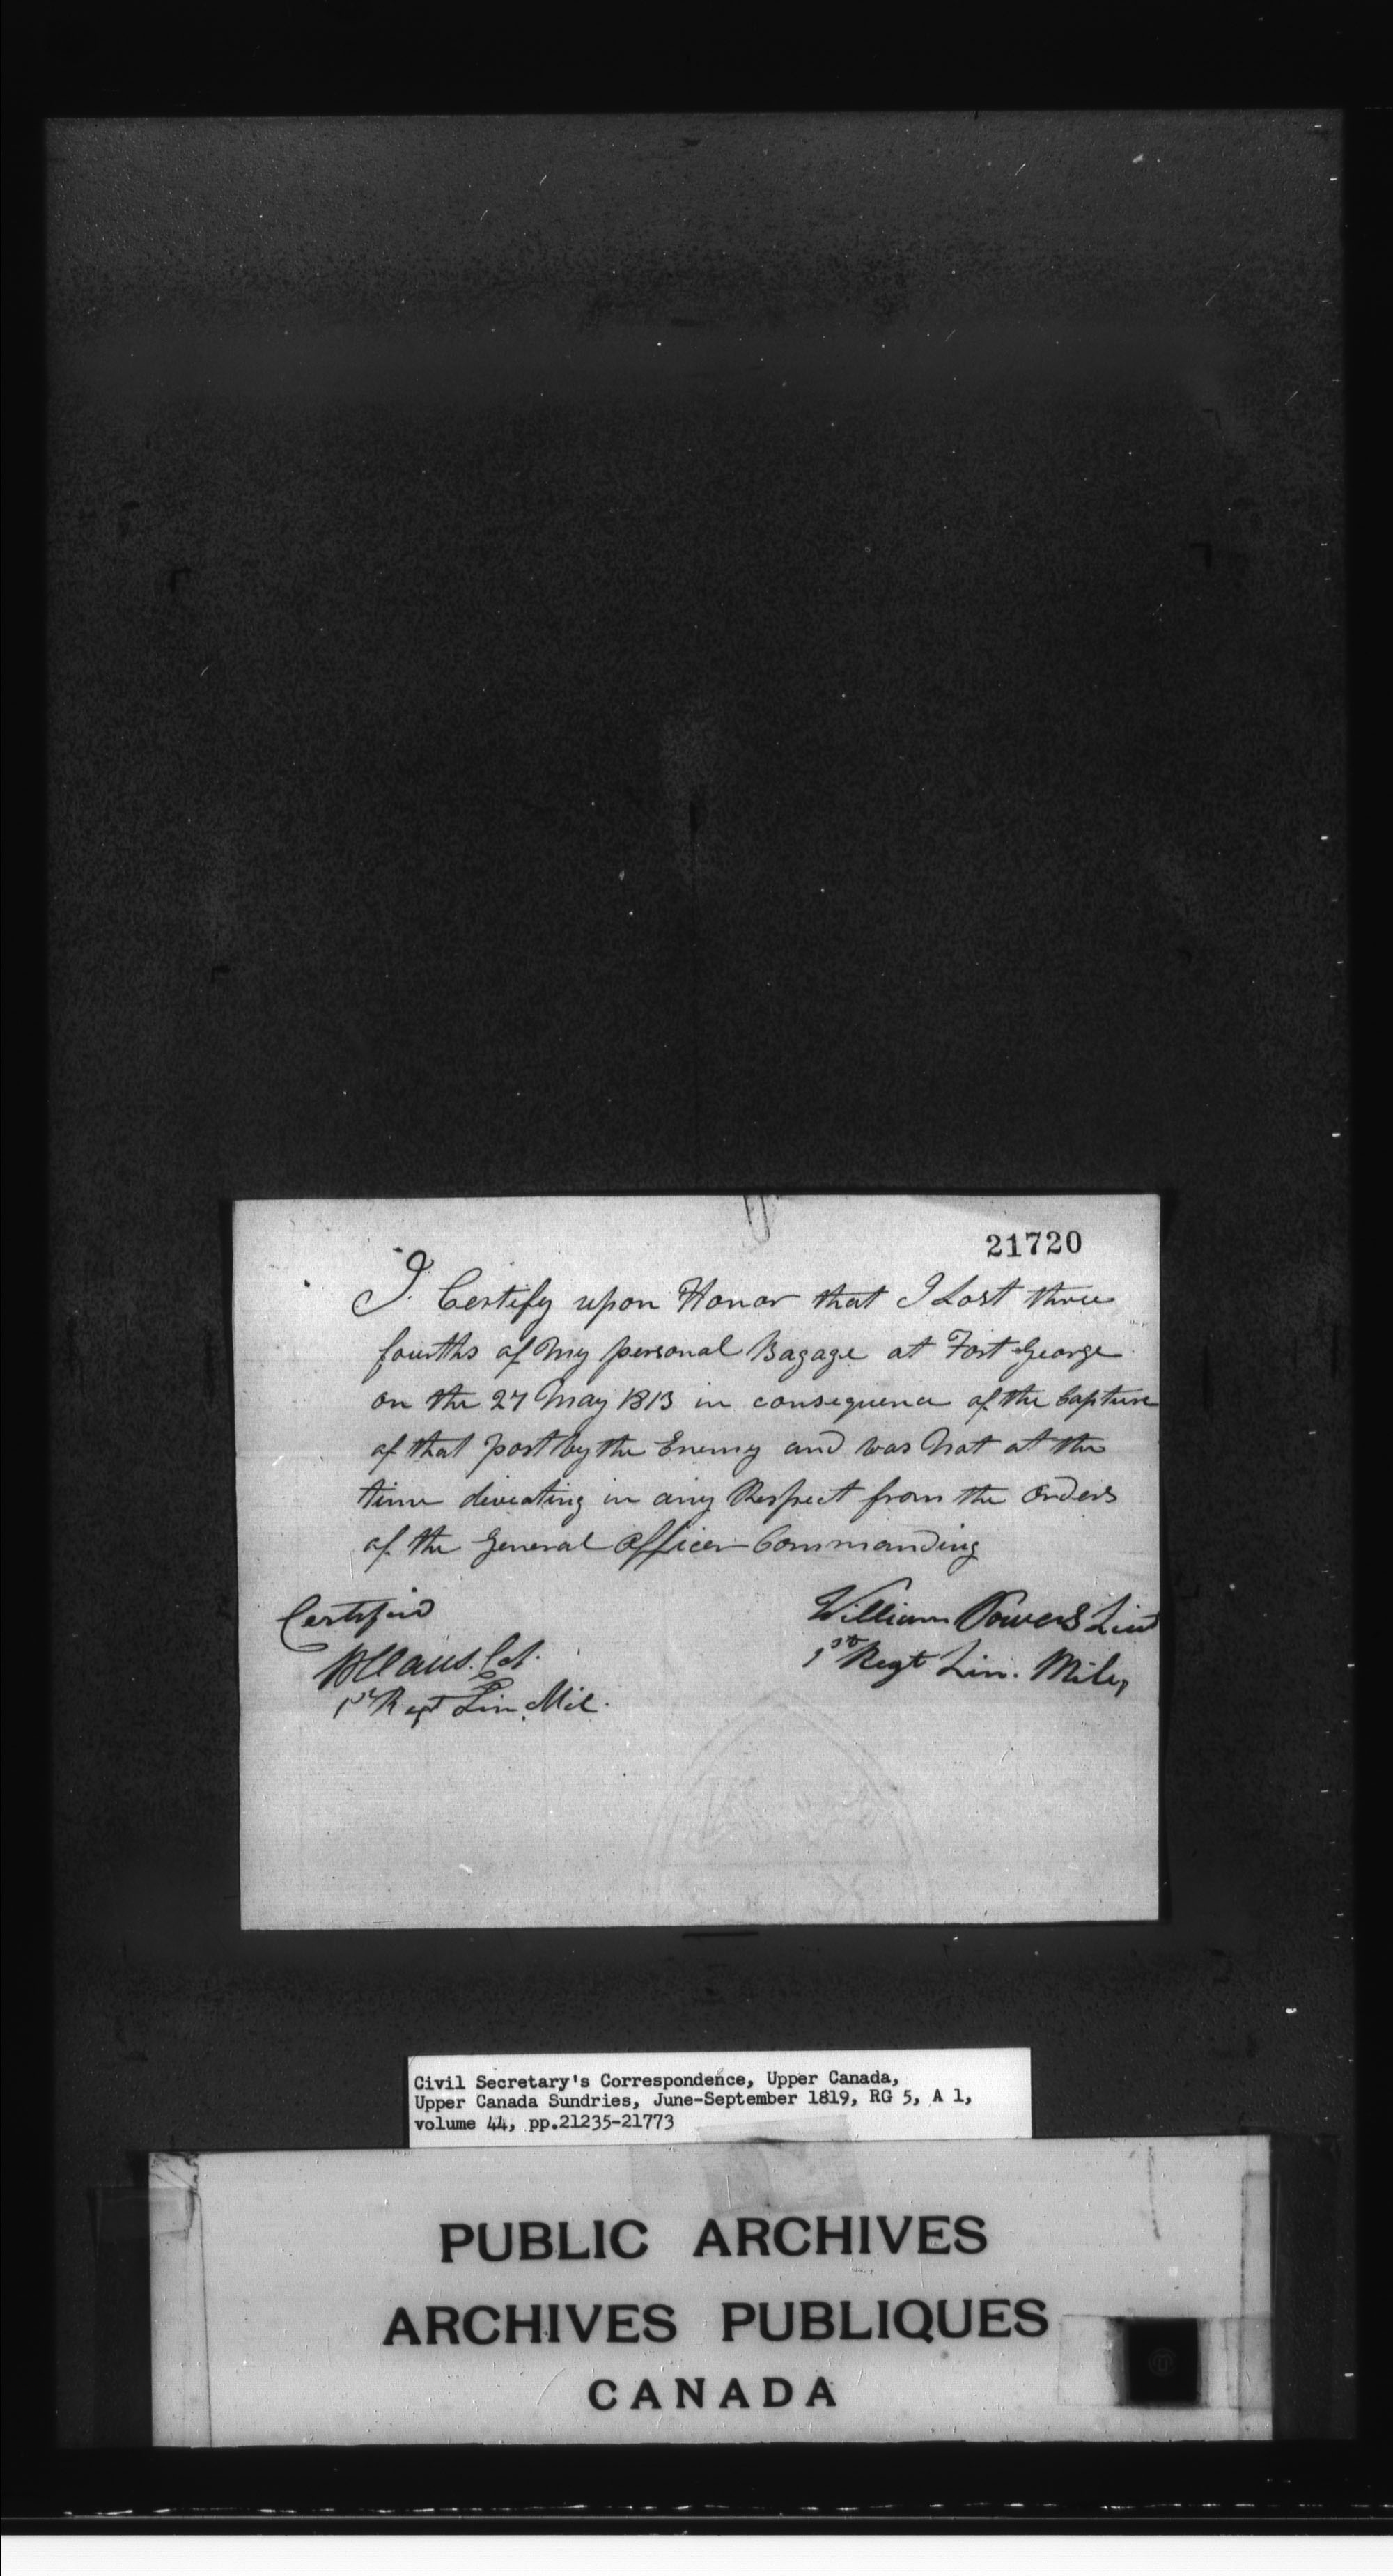 21720
I. Certify upon Honor that I Lost three
fourths of My personal Bagage at Fort George
on the 27 May 1813 in consequence of the Capture
of that post by the Enemy and was Not at the
time deveating in any Respect from the Orders
of the General Officer Commanding
Certified
William Powers Lieut
WClaus. Col.
1st Regt Lin. Mil,
1st Regt Lin. Mil.
Civil Secretary's Correspondence, Upper Canada,
Upper Canada Sundries, June-September 1819, RG 5, A 1,
volume 44, pp.21235-21773
PUBLIC ARCHIVES
ARCHIVES PUBLIQUES
CANADA